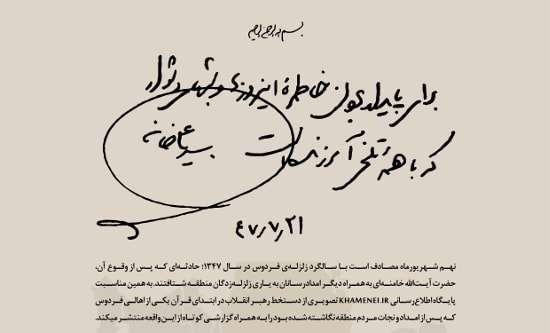 بسم الله الرحمن الرحیم
برای پایدار بودن خاطرهٔ این روزها و شبهای دشوار
که با همهٔ تلخی آموزنده است
سیدعلی خامنه
۴۷٫۷٫۲۱
نهم شهریورماه مصادف است با سالگرد زلزله‌ی فردوس در سال ۱۳۴۷؛ حادثه‌ای که پس از وقوع آن،
حضرت آیت‌الله خامنه‌ای به همراه دیگر امدادرسانان به یاری زلزله‌زدگان منطقه شتافتند. به همین مناسبت
پایگاه اطلاع‌رسانی KHAMENEI.IR تصویری از دستخط رهبر انقلاب در ابتدای قرآن یکی از اهالی فردوس
که پس از امداد و نجات مردم منطقه نگاشته شده بود را به همراه گزارشی کوتاه از این واقعه منتشر میکند.